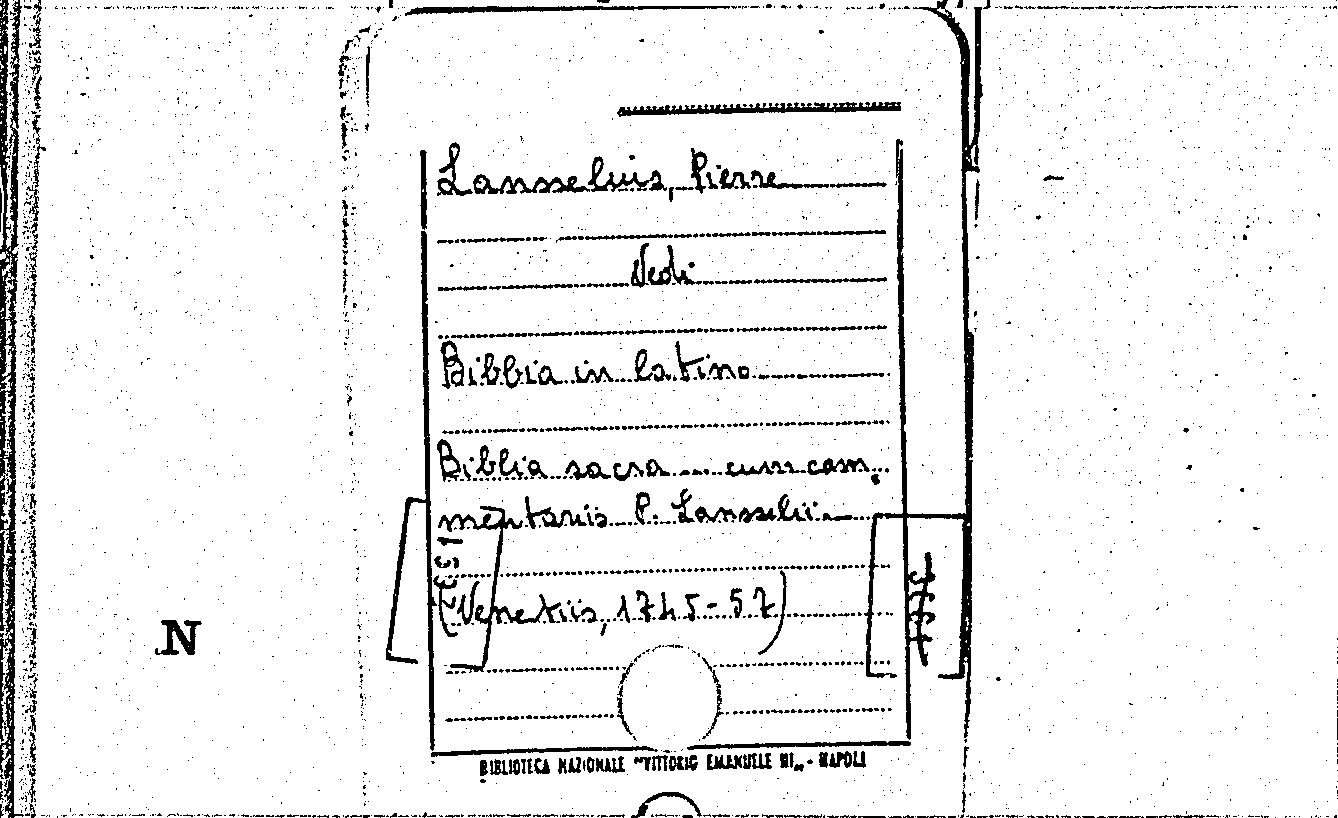 Lansselius, Pierre
Vedi
Bibbia in latino
Biblia sacra ... cum com_
mentariis P. Lansselii.
(Venetiis, 1745-57)
N
BIBLIOTECA NAZIONALE "VITTORIO EMANUELE III„ - NAPOLI